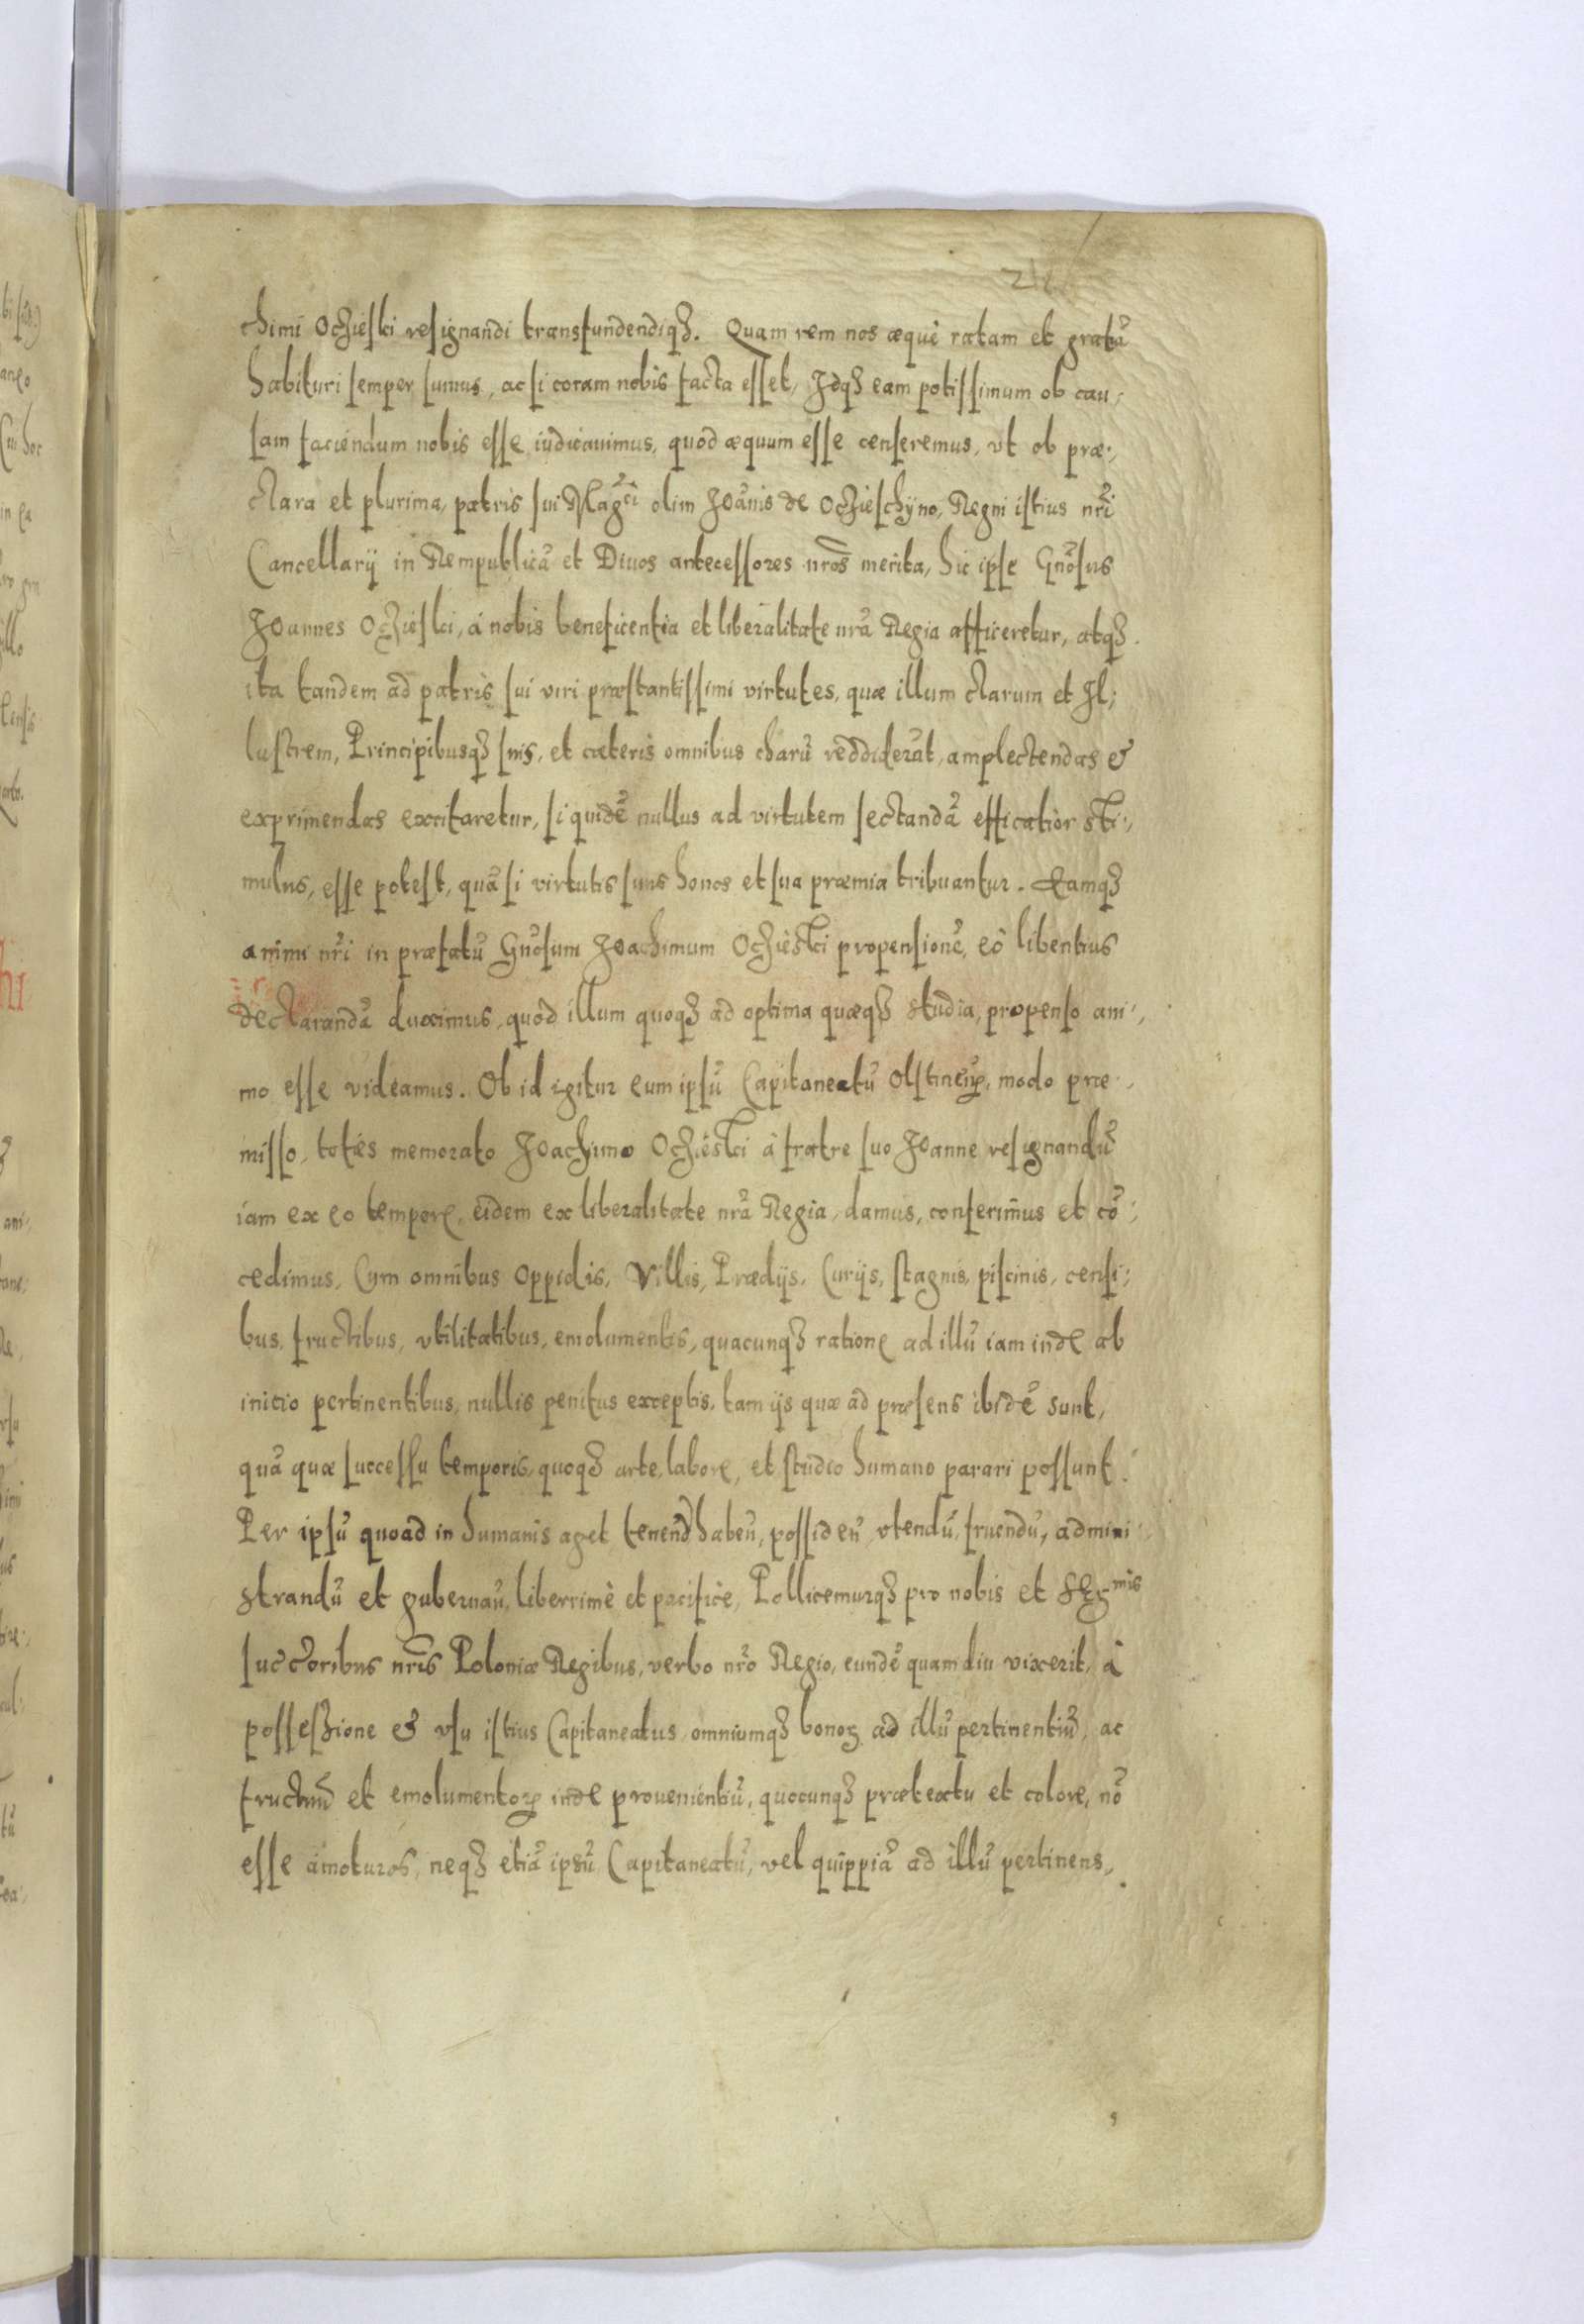 chimi Oczieski resignandi transfundendiqꝫ. Quam rem nos æquè ratam et gratã
habituri semper sumus, ac si coram nobis facta esset, Idqꝫ eam potissimum ob cau:
sam faciendum nobis esse iudicauimus, quòd æquum esse censeremus, vt ob præ:
clara et plurima, patris sui Mag^ci olim Joãnis de Oczieschyno, Regni istius nr̃i
Cancellarij in Rempublicã et Diuos antecessores nr̃os merita, hic ipse Gñosus
Joannes Oczieski, á nobis beneficentia et liberalitate nr̃a Regia afficeretur, atqꝫ
ita tandem ad patris sui viri præstantissimi virtutes, quæ illum clarum et Il:
lustrem, Principibusqꝫ suis, et cæteris omnibus charũ reddiderãt, amplectendas &
exprimendas excitaretur, si quidẽ nullus ad virtutem sectandã efficatior sti:
mulus, esse potest, quã si virtutis suus honos et sua præmia tribuantur. Eamqꝫ
animi nr̃i in præfatũ Gñosum Joachimum Oczieski propensionẽ, eò libentius
declarandã duximus, quòd illum quoqꝫ ad optima quæqꝫ studia, propenso ani:
mo esse videamus. Ob id igitur eum ipsũ Capitaneatũ Olstineñ, modo præ:
misso, toties memorato Joachimo Oczieski à fratre suo Joanne resignandũ
iam ex eo tempore, eidem ex liberalitate nr̃a Regia, damus, conferimus et cõ:
cedimus, Cum omnibus oppidis, Villis, Prædijs, Curijs, stagnis, piscinis, censi:
bus, fructibus, vtilitatibus, emolumentis, quacunqꝫ ratione ad illũ iam inde ab
inicio pertinentibus, nullis penitus exceptis, tam ijs quæ ad præsens ibidẽ sunt,
quã quæ successu temporis, quoqꝫ arte, labore, et studio humano parari possunt.
Per ipsũ quoad in humanis aget tenend habeñ, possideñ vtendũ, fruendũ, admini:
strandũ et gubernañ, liberrimè et pacificè, Pollicemurqꝫ pro nobis et Ser^mis
succ̃oribus nr̃is Poloniæ Regibus, verbo nr̃o Regio, eundẽ quamdiu vixerit, à
possessione & vsu istius Capitaneatus, omniumqꝫ bonoꝝ ad illũ pertinentiũ, ac
fructuũ et emolumentoꝝ inde prouenientiũ, quocunqꝫ prætextu et colore, nõ
esse amoturos, neqꝫ etiã ipsũ Capitaneatũ, vel quippiã ad illũ pertinens,